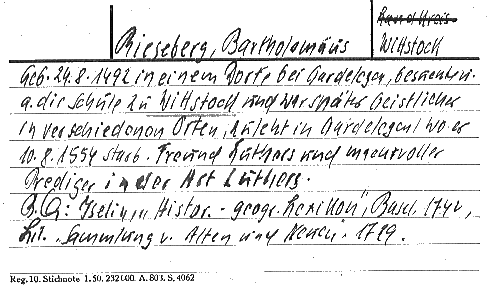 Rieseberg, Bartholomäus
Wittstock
Geb. 24.8.1492 in einem Dorfe bei Gardelegen, besuchte u.
a. die Schule zu Wittstock und war später Geistlicher
in verschiedenen Orten, zuletzt in Gardelegen/ wo er
10.8.1554 starb. Freund Luthers und machtvoller
Prediger in der Art Luthers.
B.Q: Iselin „Histor.-geogr. Lexikon", Basel 1742,
Lit. Sammlung v. Alten und Neuen. 1719.
Reg. 10. Stichnote 1. 50. 232 000. A. 803. S. 4062